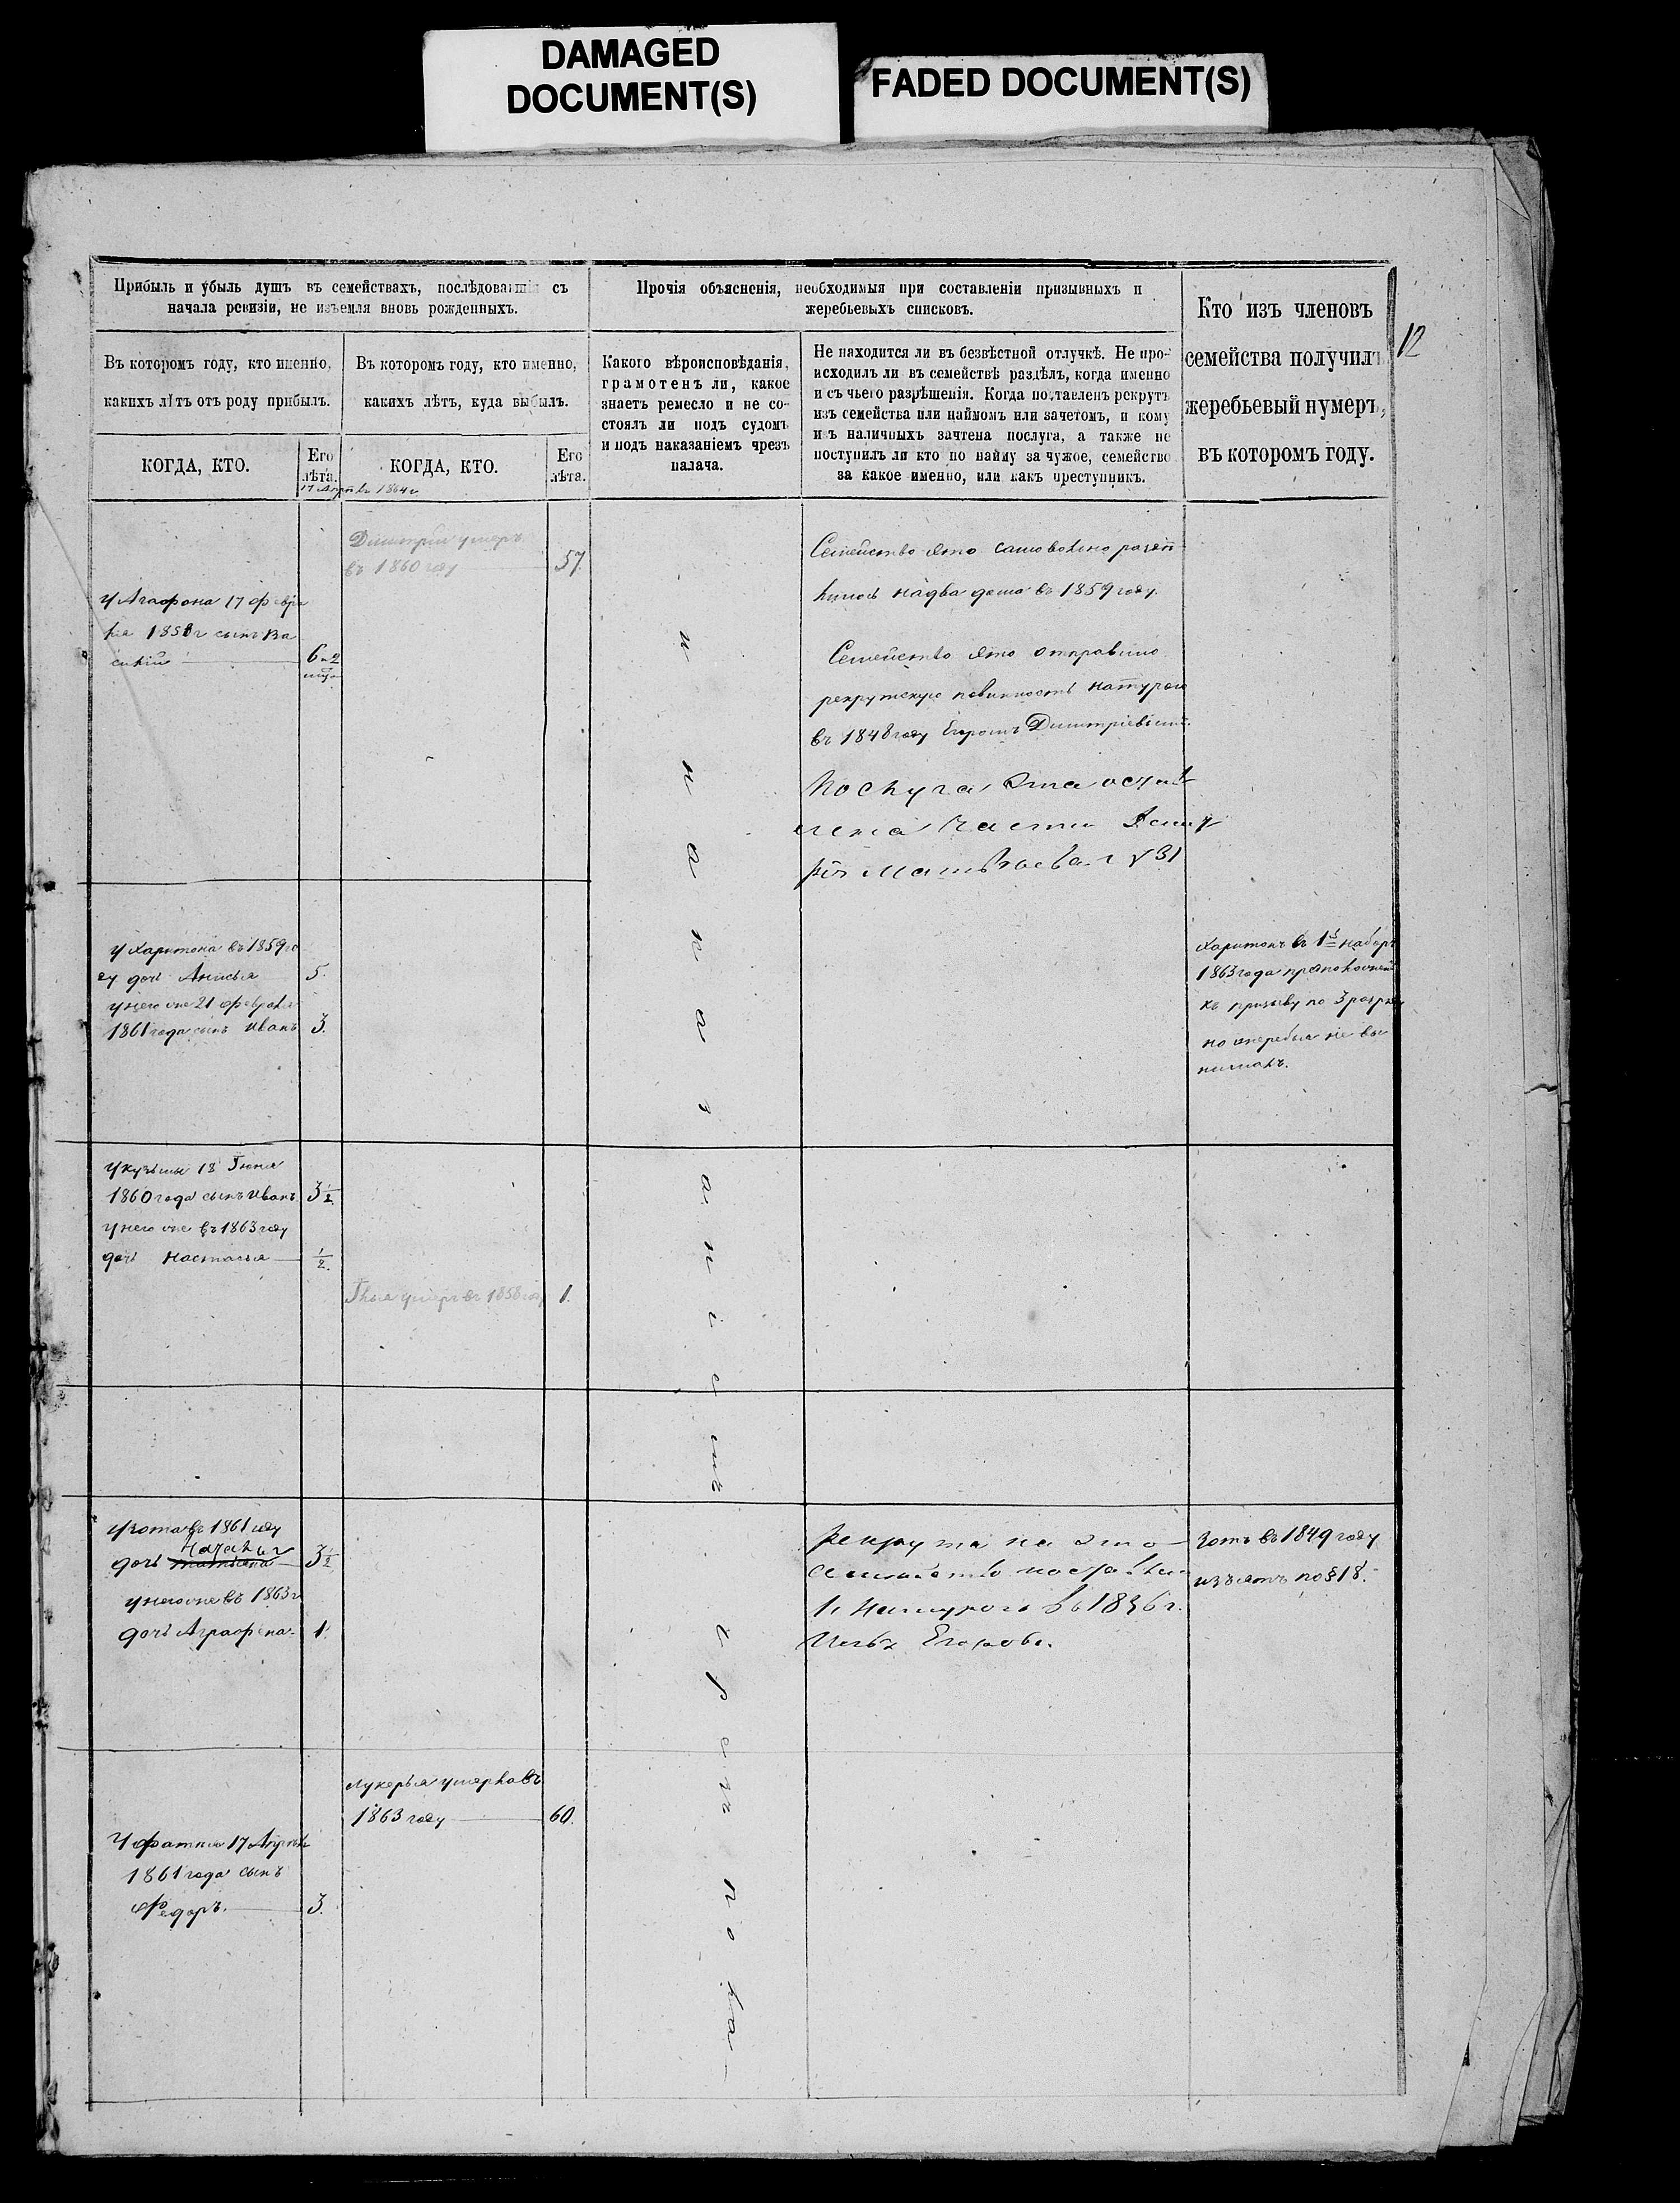 DAMAGED
DOCUMENT(S)
FADED DOCUMENT(S)
12
Прибыль и убыль душъ въ семействахъ, послѣдовавшія съ
начала ревизіи, не изъемля вновь рожденныхъ.
Прочія объясненія, необходимыя при составленіи призывныхъ и
жеребьевыхъ списковъ.
Кто изъ членовъ
семейства получилъ
жеребьевый нумеръ,
въ которомъ году.
Въ которомъ году, кто именно,
какихъ лѣтъ отъ роду прибылъ.
Въ которомъ году, кто именно,
какихъ лѣтъ, куда выбылъ.
Какого вѣроисповѣданія,
грамотенъ ли, какое
знаетъ ремесло и не со-
стоялъ ли подъ судомъ
и подъ наказаніемъ чрезъ
палача.
Не находится ли въ безвѣстной отлучкѣ. Не про-
исходилъ ли въ семействѣ раздѣлъ, когда именно
и съ чьего разрѣшенія. Когда поставленъ рекрутъ
изъ семейства или наймомъ или зачетомъ, и кому
изъ наличныхъ зачтена послуга, а также не
поступилъ ли кто по найму за чужое, семейство
за какое именно, или какъ преступникъ.
КОГДА, КТО.
Его
лѣта.
КОГДА, КТО.
Его
лѣта.
1864г
Димитрій умеръ
въ 1860 году 57.
у Агафона 17 февра
ля 1858г сынъ Ва
силій 6 и 2
Семейство это самовольно раздѣ
лилось на два дома въ 1859 году.
Семейство это отправило
рекрутскую повинность натурою
въ 1848 году Егоромъ Димитріевымъ.
Послуга эта
части
Матвѣева
у Харитона въ 1859 го
ду дочь Анисья 5.
у него же 21 февраля
1861 года сынъ Иванъ 3.
Харитонъ въ 1й наборъ
1863 года
къ призыву по 3 разряду
но жеребья не вы
нималъ.
у Кузьмы 18 Іюня
1860 года сынъ Иванъ 3 1/2
у него же въ 1863 году
дочь Настасья 1/2.
Илья умеръ въ 1858 году 1.
у Зота въ 1861 году
дочь Наталья 3 1/2
у него же въ 1863 г
дочь Аграфена. 1.
Рекрута на это
семейство поставили
натурою въ 1836 г.
Егорова.
Зотъ въ 1849 году
изъятъ по § 18.
Лукерья умерла въ
1863 году 60.
У Фатея 17 Апрѣля
1861 года сынъ
Федоръ. 3.